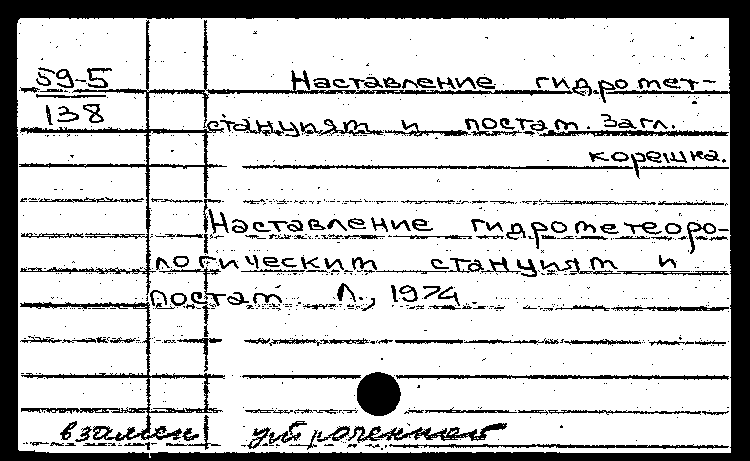 59-5
138
Наставление гидромет-
станциям и постам. Загл.
корешка.
Наставление гидрометеоро-
логическим станциям и
постам. Л., 1974.
взамен утраченного